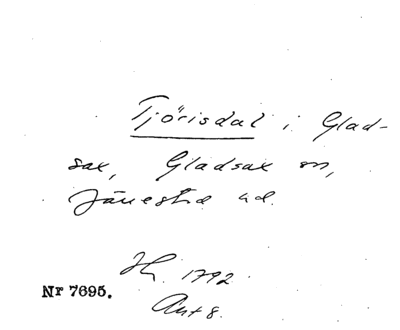 Tjörisdal i Glad-
sax, Gladsax sn,
Järrestad hd.
JK. 1792
Nr 7695.
Akt 8.